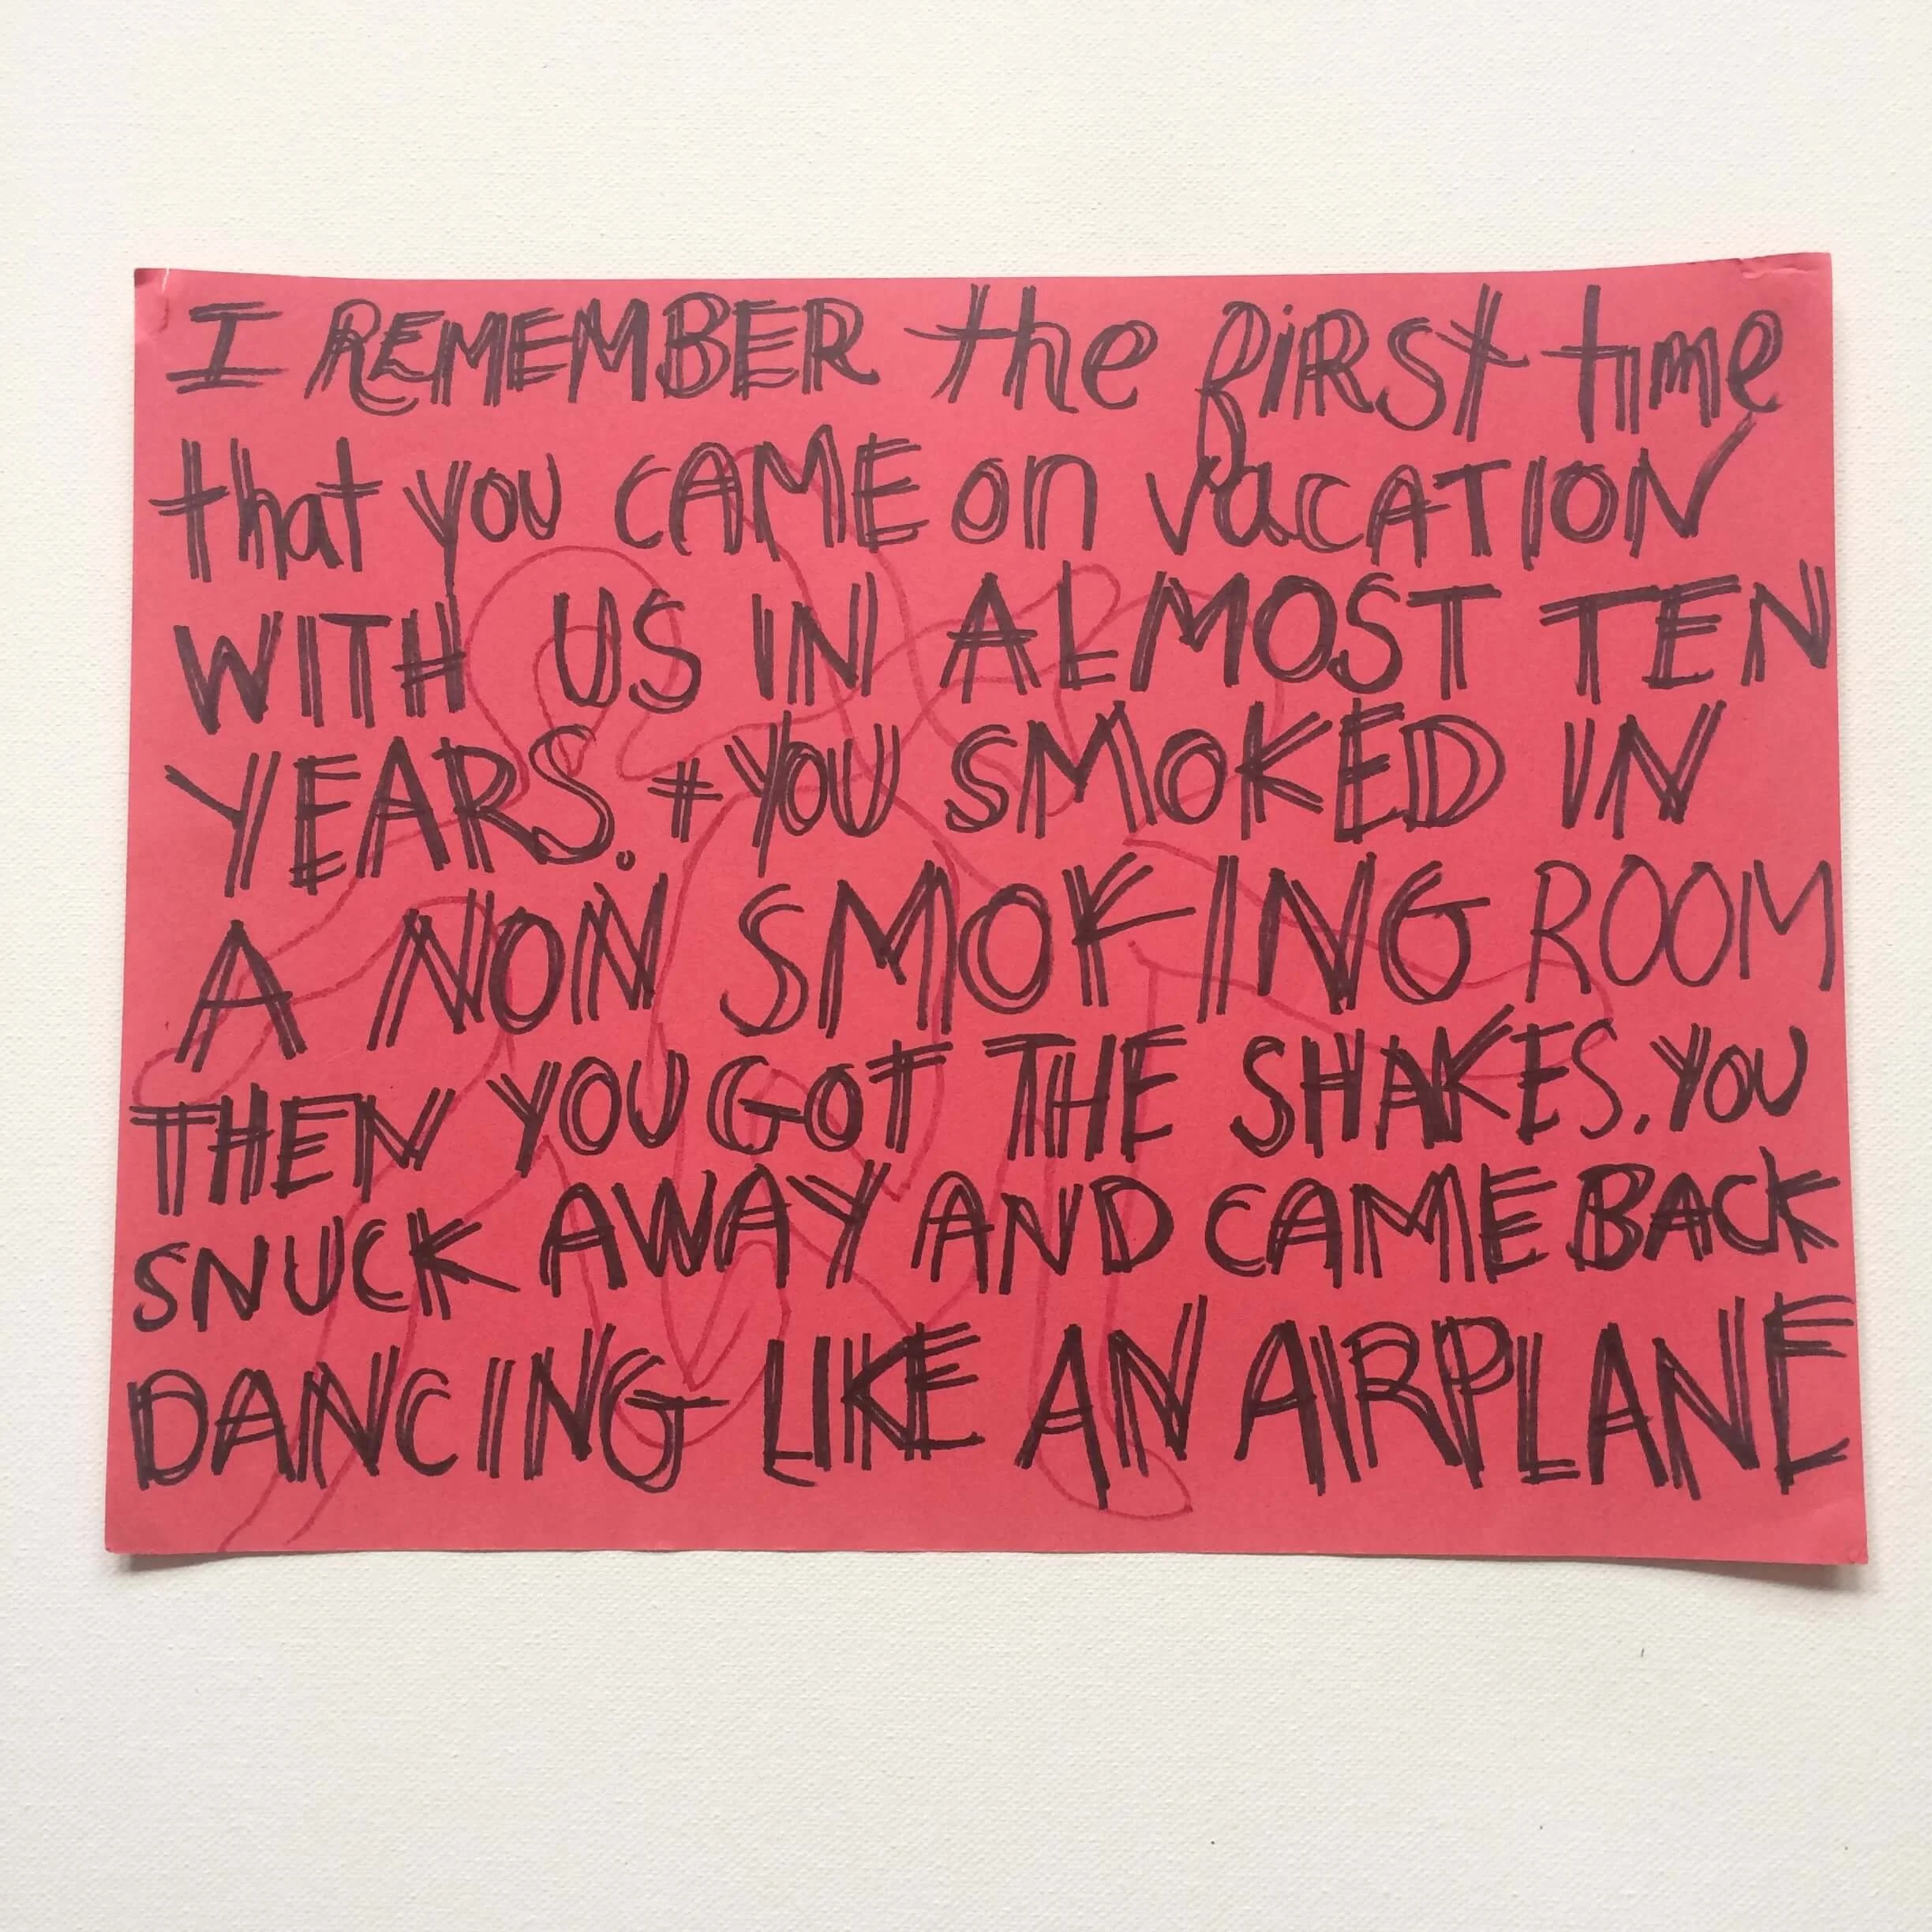 I REMEMBER the fiRSt time
that you CAME on VaCATION
WITH US IN ALMOST TEN
YEARS. + YOU SMOKED IN
A NON SMOKING ROOM
THEN YOU GOT THE SHAKES. YOU
SNUCK AWAY AND CAME BACK
DANCING LIKE AN AIRPLANE